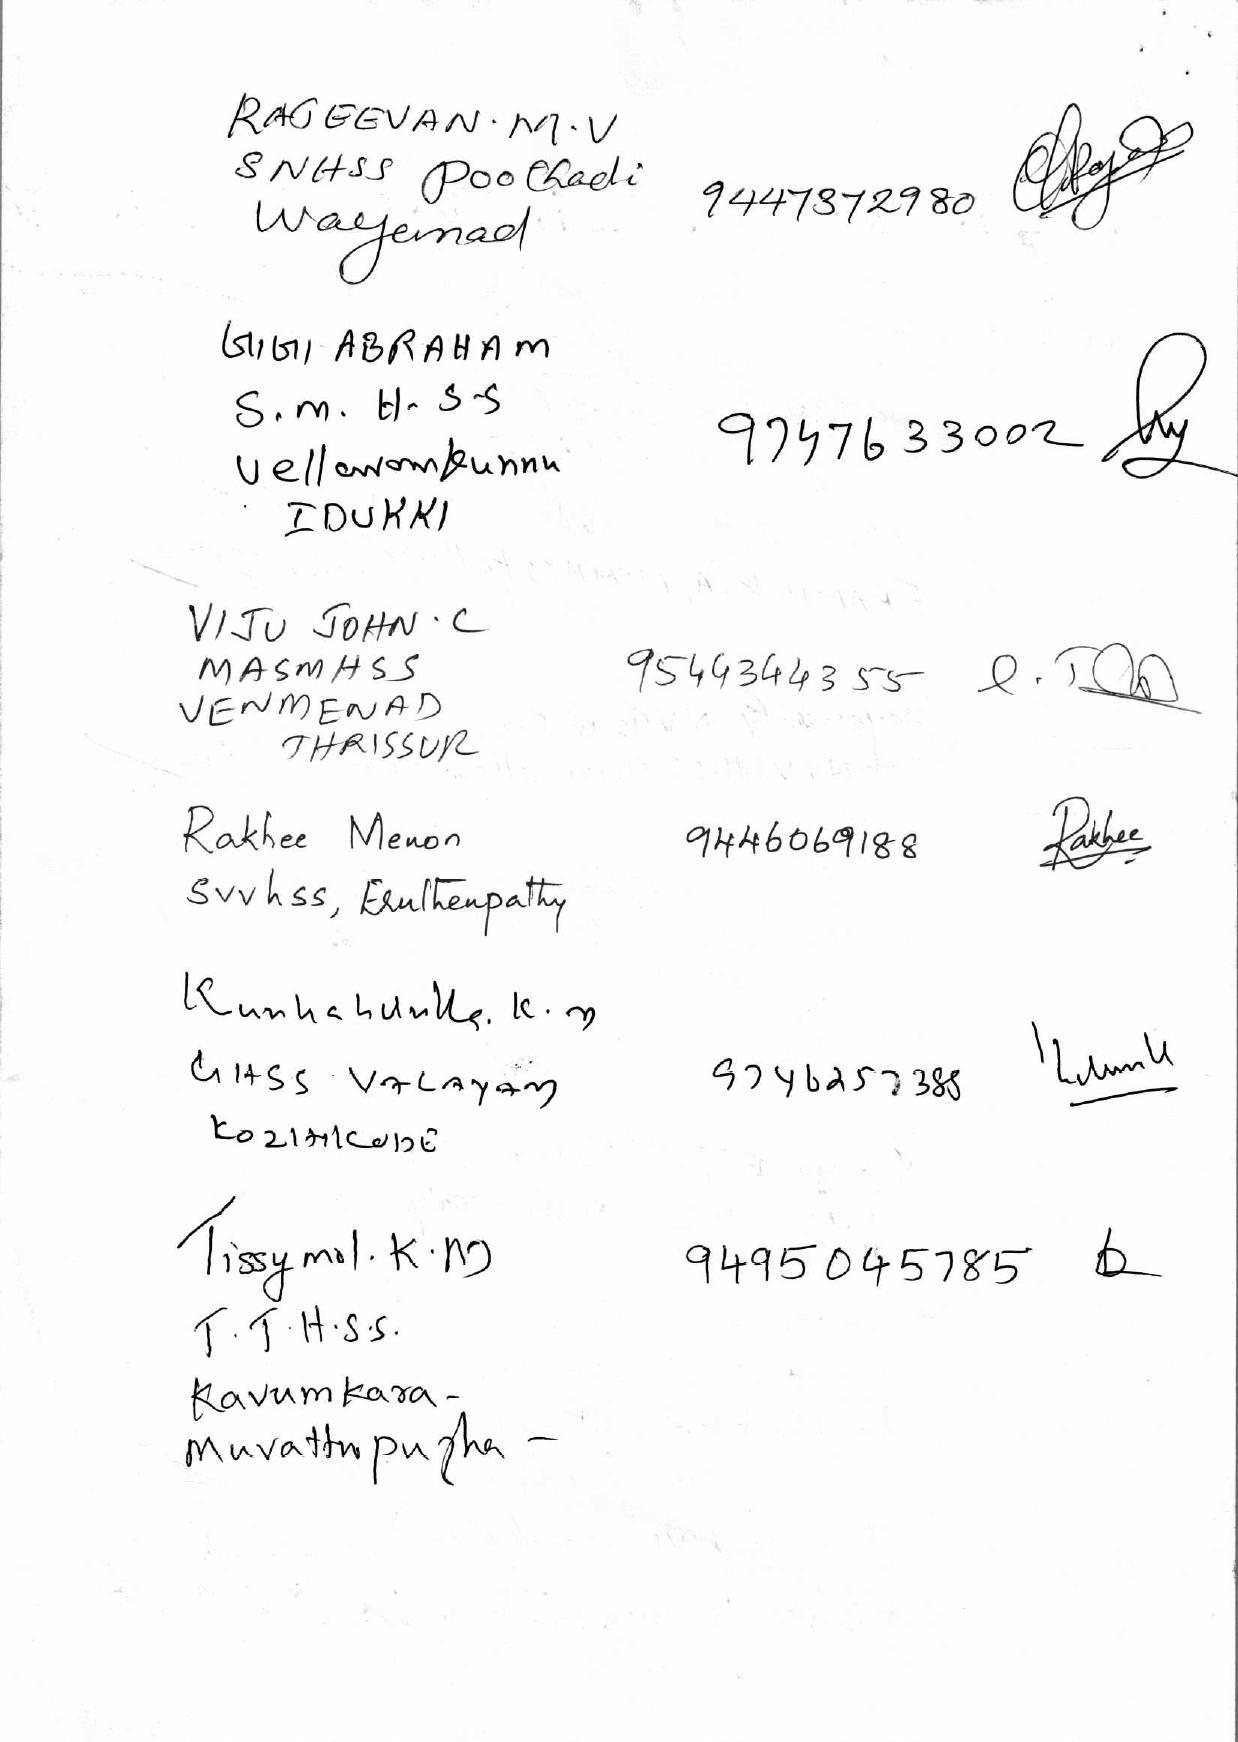 RAGEEVAN. M. V
SNHSS Poothadi
Wayanad
9447372980
GIGI ABRAHAM
S. M. H. S S
Vellaramkunnu
IDUKKI
9747633002
VIJU JOHN. C
MASMHSS
VENMENAD
THRISSUR
9544344355
Rakhee Menon
SVVhss, Eruthenpathy
9446069188
Rakhee
K. M
GHSS VALAYAM
KOZHIKODE
9746257388
Tissymol. K. M
T. T. H. S. S.
Kavumkara -
Muvattupuzha -
9495045785